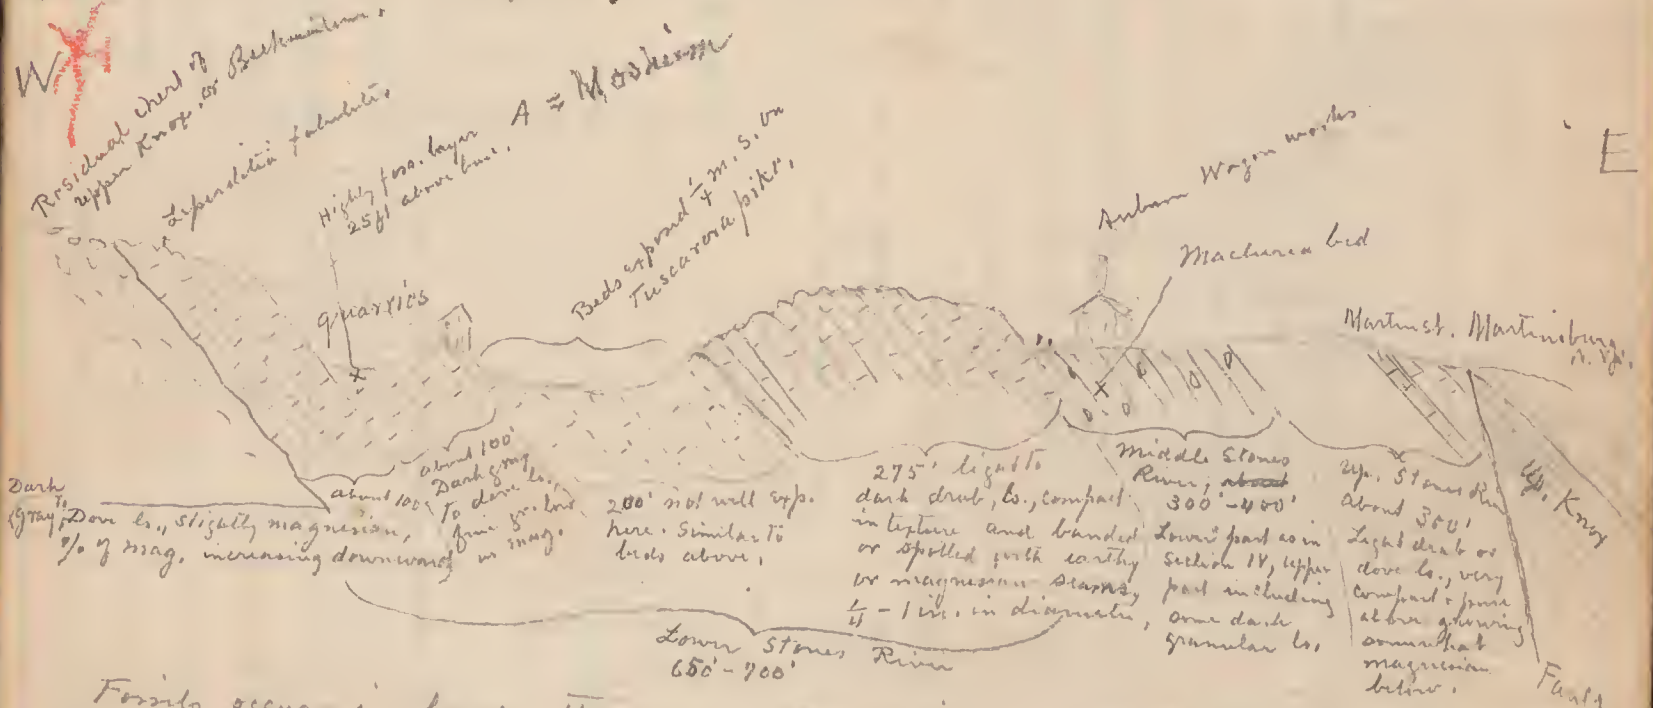 W
Residual chert of
upper Knox, or Beekmantown.
Leperditia
Highly foss. layer
25 ft above base.
A = Mosheim
quarries
Beds exposed 1/4 m. S. on
Tuscarora pike.
Auburn Wagon works
Maclurea bed
E
Martinsb. Martinsburg,
W. Va.
Dark
gray to
Dove ls., slightly magnesian,
% of mag. increasing downward
about 100'
about 100'
Dark gray
to dove ls.,
fine gr. low
in mag.
200' not well exp.
here. Similar to
beds above.
275' light to
dark drab, ls., compact
in texture and banded
or spotted with earthy
or magnesian seams,
1/4 - 1 in. in diameter,
Middle Stones
River, about
300'-400'
Lower part as in
Section IV, upper
part including
some dark
granular ls.
Up. Stones Riv.
about 350'
Light drab or
dove ls., very
compact & pure
above growing
somewhat
magnesian
below.
Up. Knox
Fault
Lower Stones River
650'-700'
Fossils occur in